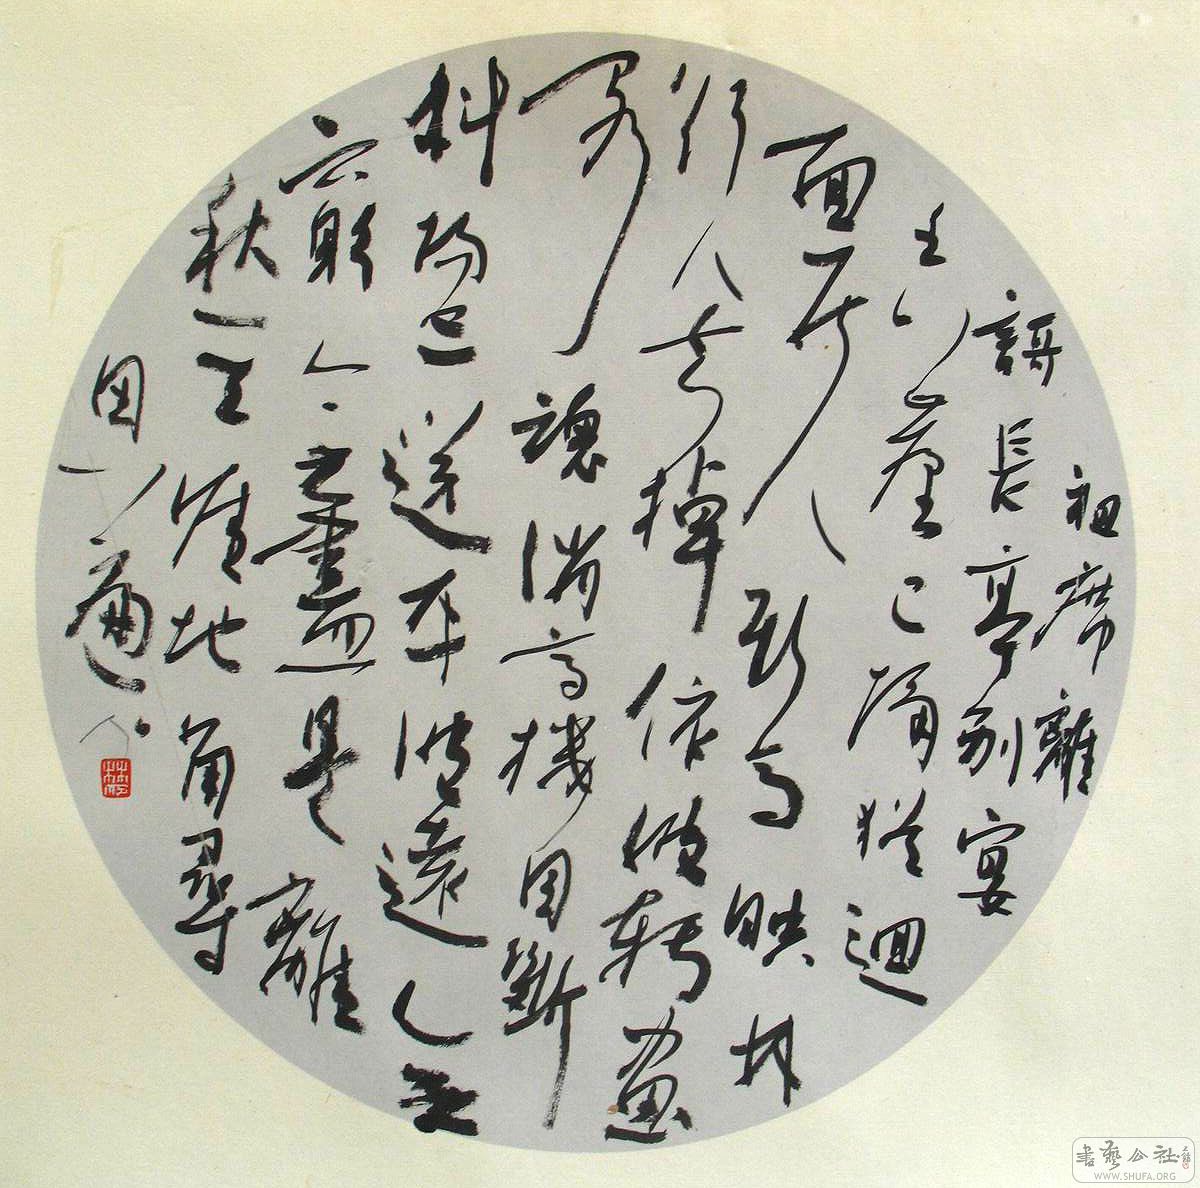 祖席離
謌長亭別宴
塵已隔猶迴
面居人馬映林
行人去棹依波轉畫
閣魂消高樓目斷
斜陽送平波遠無
窮盡是離
秋天涯地角尋
思遍
書藝公社
WWW.SHUFA.ORG